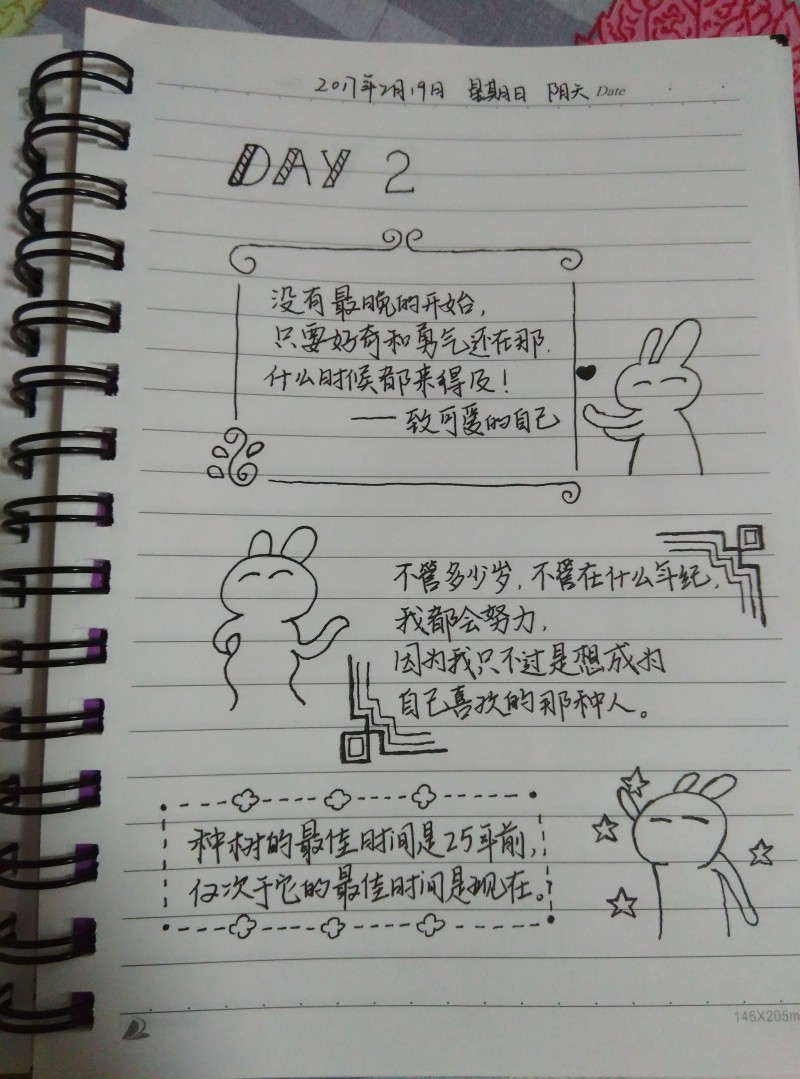 2017年2月19日 星期日 阴天 Date
DAY 2
没有最晚的开始,
只要好奇和勇气还在那,
什么时候都来得及!
——致可爱的自己
不管多少岁,不管在什么年纪,
我都会努力,
因为我只不过是想成为
自己喜欢的那种人。
种树的最佳时间是25年前,
仅次于它的最佳时间是现在。
145X205m